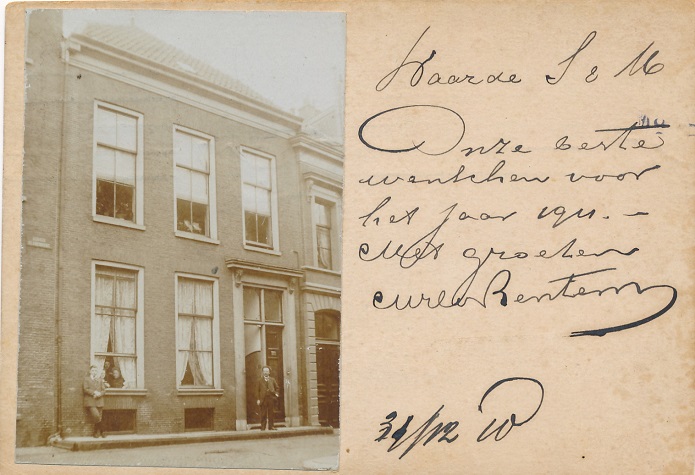 Waarde S & M
Onze beste
wenschen voor
het jaar 1911. –
Met groeten
31/12 10